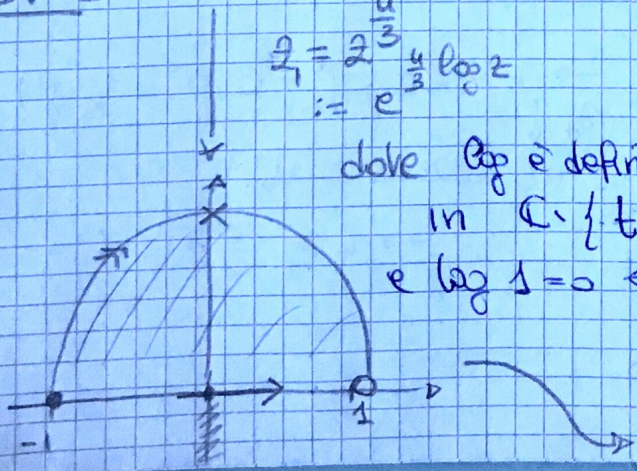 z₁ = z^{4/3}
:= e^{4/3 log z}
dove log è defin
in ℂ∖{t
e log 1 = 0
-1
1